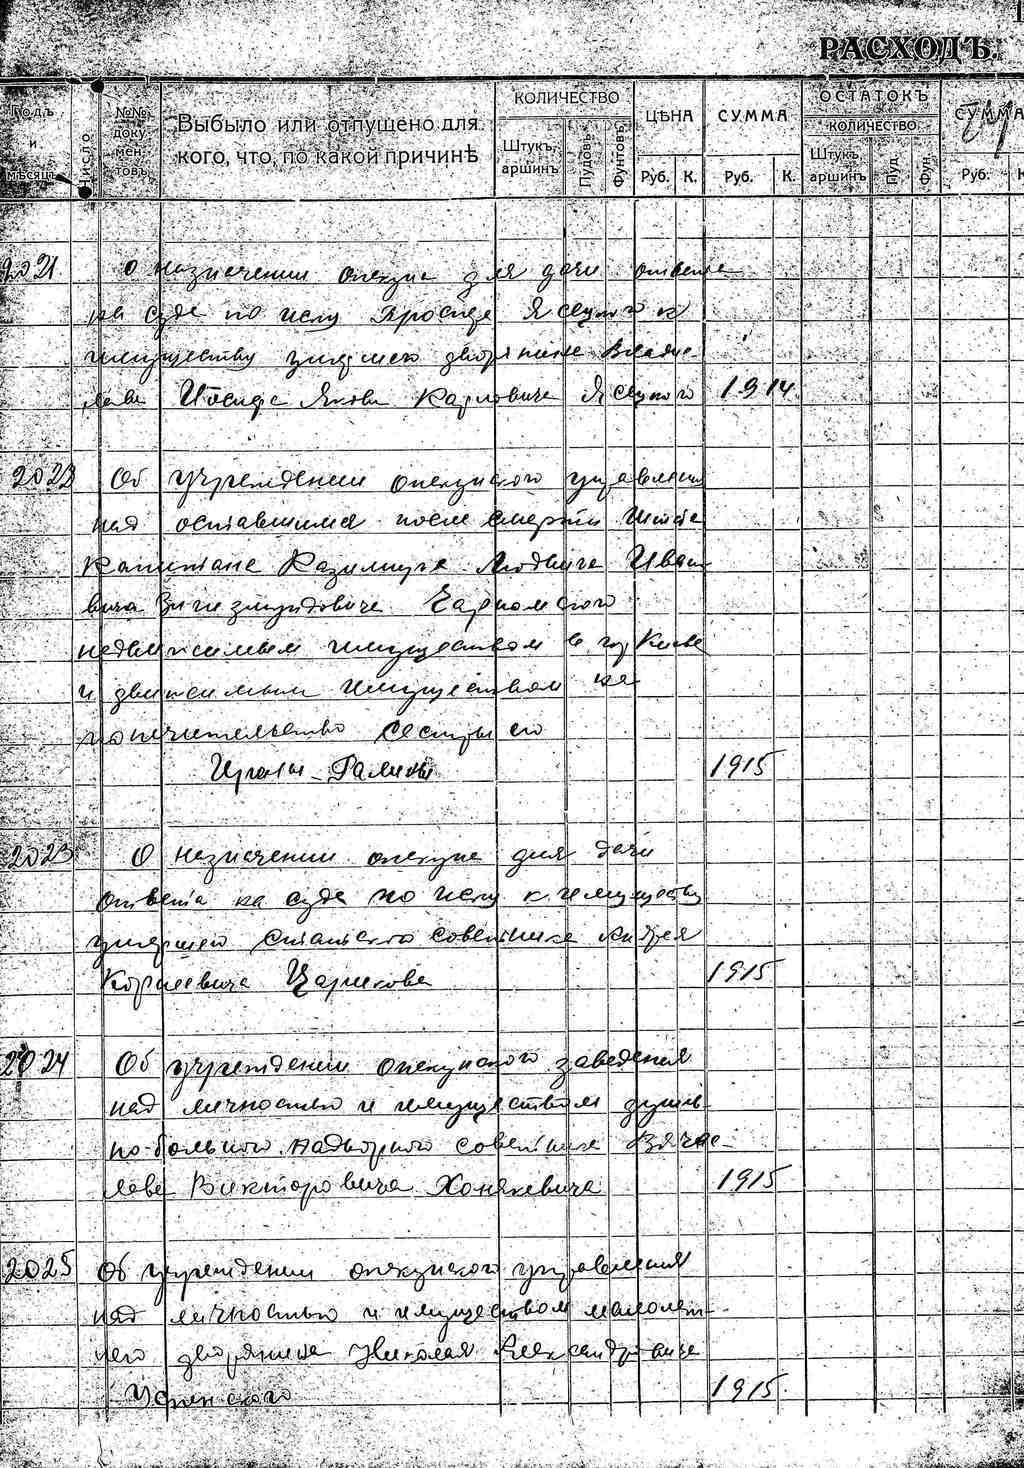 РАСХОДЪ.
Годъ и мѣсяцъ
Число
№№ документовъ
Выбыло или отпущено для кого, что, по какой причинѣ
КОЛИЧЕСТВО
Штукъ, аршинъ
Пудовъ
Фунтовъ
ЦѢНА
Руб. К.
СУММА
Руб. К.
ОСТАТОКЪ
КОЛИЧЕСТВО
Штукъ, аршинъ
Пуд.
Фун.
СУММА
Руб. К
2021 О назначении опекуна для дачи ответа
на суде по иску Ясецкого к
имуществу умершего дворянина Владис
лава Иосифа Якова Карловича Ясецкого 1914
2022 Об учреждении опекунского управления
над оставшимся после смерти Штабс
Капитана Казимира Людвига Ивано
вича Зигезмундовича Чарномского
недвижимым имуществом в гор Киеве
и движимым имуществом на
попечительство сестры его
1915
2023 О назначении опекуна для дачи
ответа на суде по иску к имуществу
умершего статского советника Андрея
Корнеевича Царикова 1915
2024 Об учреждении опекунского заведения
над личностью и имуществом душев
но-больного надворного советника Вячес
лава Викторовича Хонякевича 1915
2025 Об учреждении опекунского управления
над личностью и имуществом малолет-
него дворянина Николая Александровича
Успенского 1915.